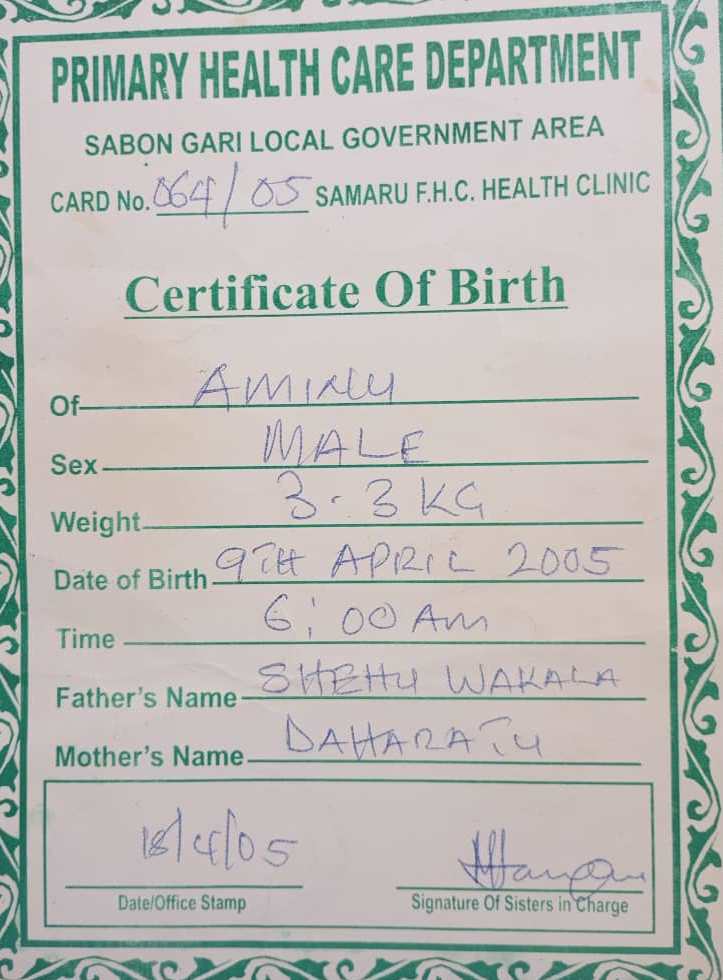 PRIMARY HEALTH CARE DEPARTMENT
SABON GARI LOCAL GOVERNMENT AREA
CARD No. 064/05 SAMARU F.H.C. HEALTH CLINIC
Certificate Of Birth
Of AMINU
Sex MALE
Weight 3.3KG
Date of Birth 9TH APRIL 2005
Time 6:00AM
Father's Name SHEHU WAKALA
Mother's Name DAHARATU
18/4/05
Date/Office Stamp
Signature Of Sisters in Charge